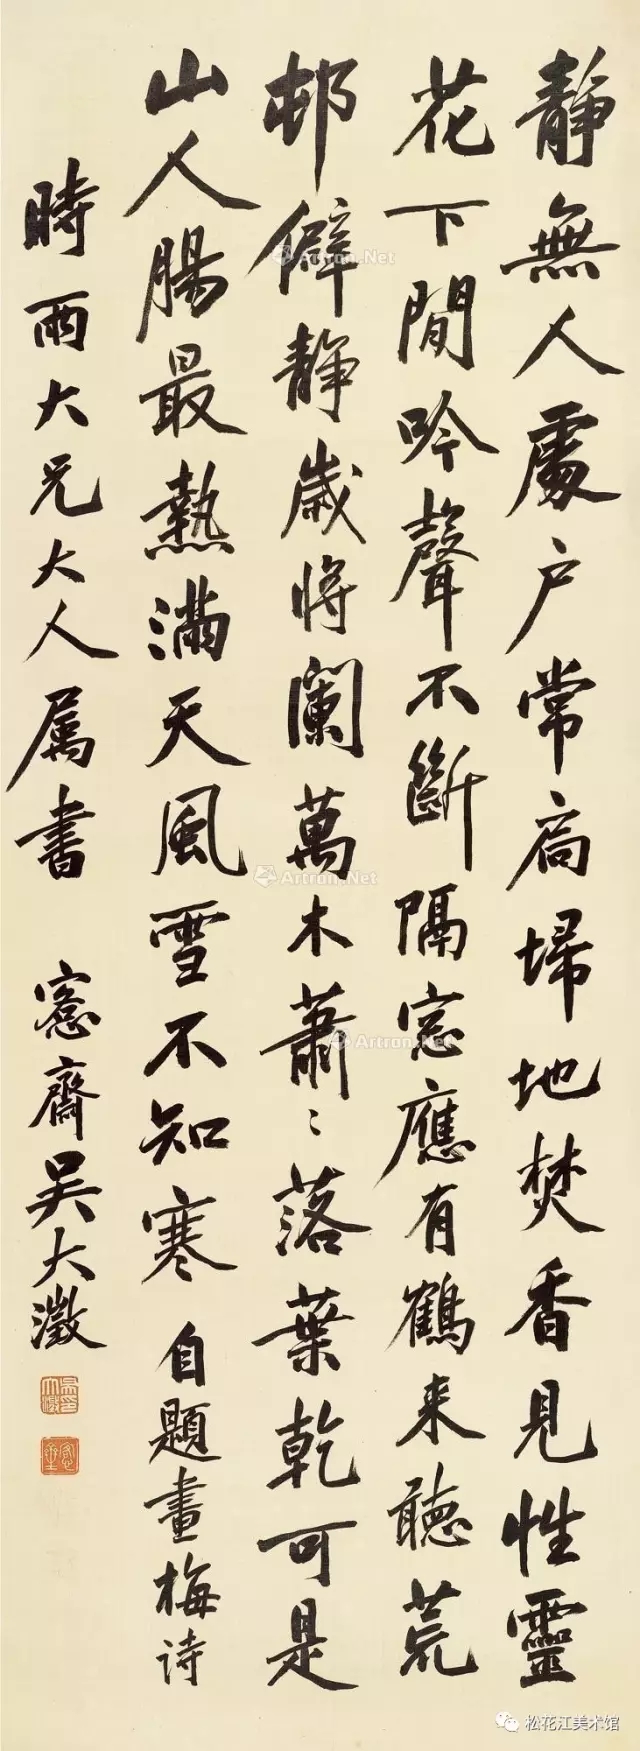 静無人處户常扃埽地焚香見性靈
花下閒吟聲不斷隔窓應有鶴来聴荒
邨僻静歲將闌萬木蕭〻落葉乾可是
山人腸最熱滿天風雪不知寒 自題畫梅詩
時雨大兄大人属書 愙齋吳大澂
Artron.Net
Artron.Net
Artron.Net
松花江美术馆